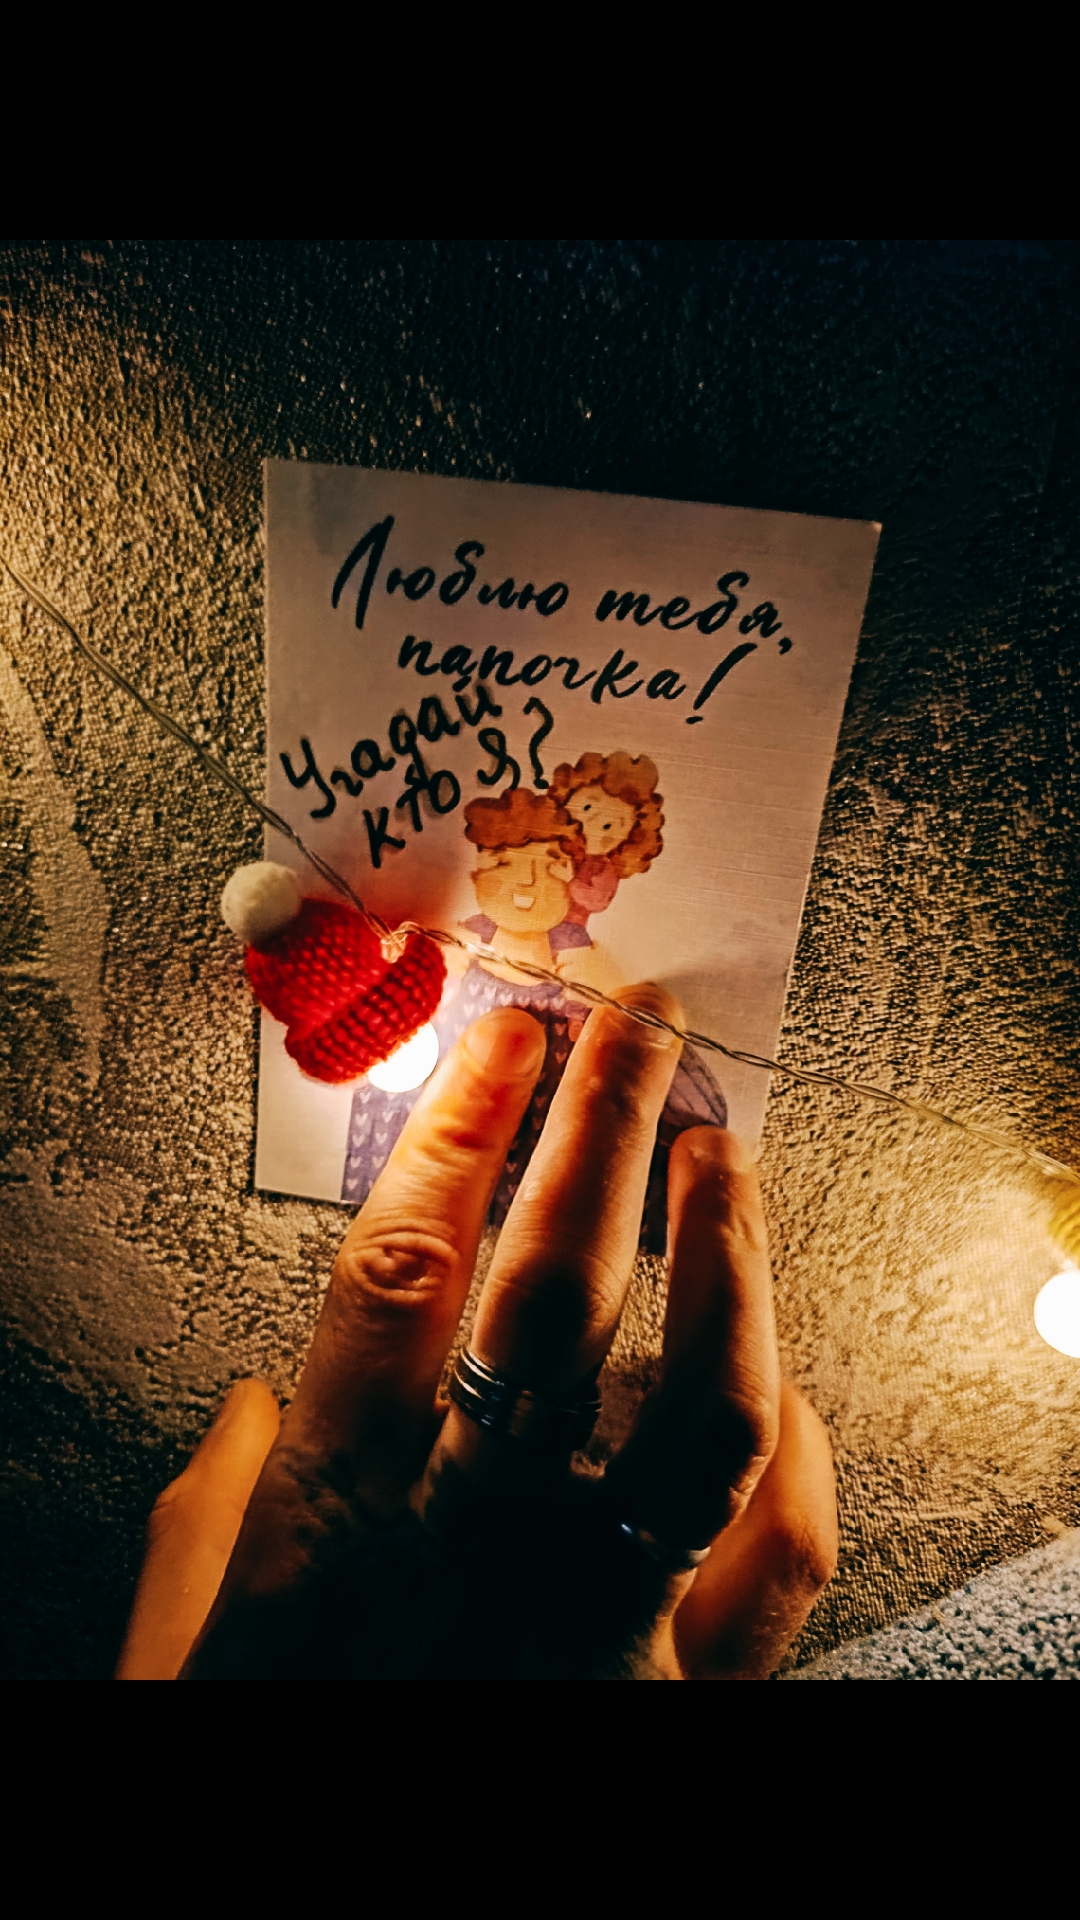 Люблю тебя,
папочка!
Угадай
кто я?